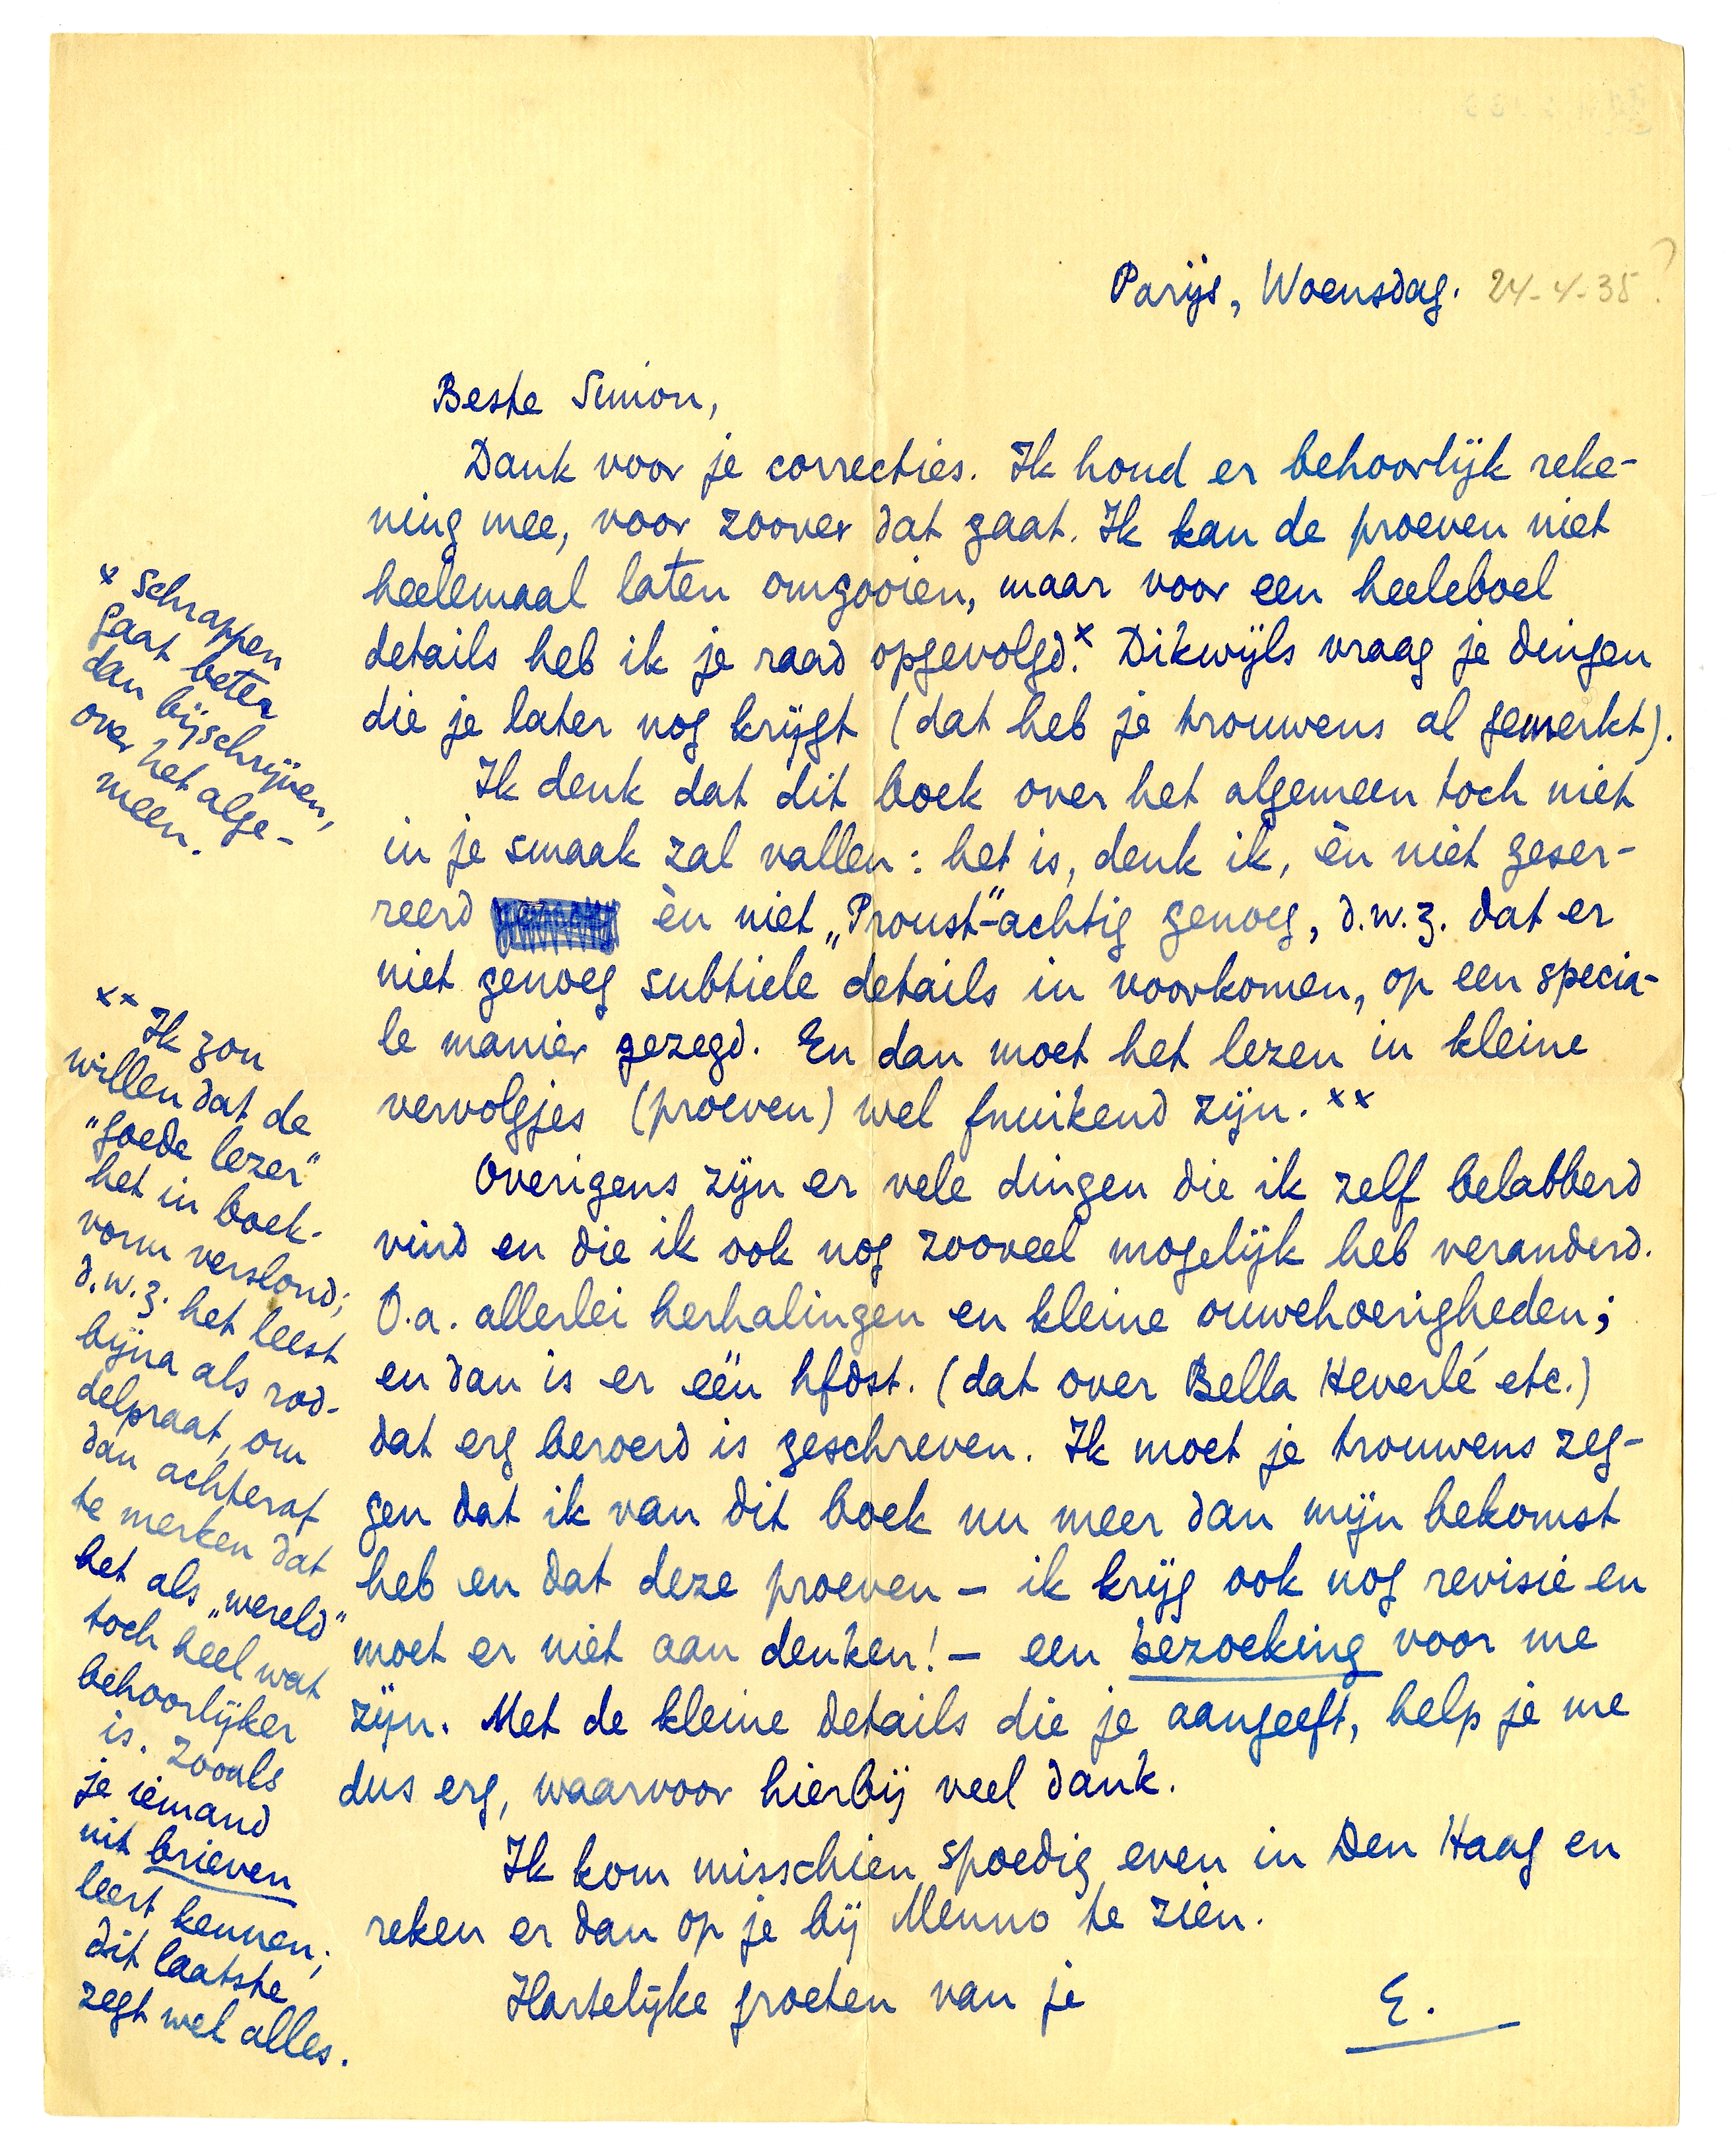 Parijs, Woensdag. 24-4-35?
Beste Simon,
Dank voor je correcties. Ik houd er behoorlijk reke-
ning mee, voor zoover dat gaat. Ik kan de proeven niet
heelemaal laten omgooien, maar voor een heeleboel
details heb ik je raad opgevolgd.x Dikwijls vraag je dingen
die je later nog krijgt (dat heb je trouwens al gemerkt).
Ik denk dat dit boek over het algemeen toch niet
in je smaak zal vallen: het is, denk ik, èn niet geser-
reerd èn niet „Proust"-achtig genoeg, d.w.z. dat er
niet genoeg subtiele details in voorkomen, op een specia-
le manier gezegd. En dan moet het lezen in kleine
vervolgjes (proeven) wel fnuikend zijn. xx
Overigens zijn er vele dingen die ik zelf belabberd
vind en die ik ook nog zooveel mogelijk heb veranderd.
O.a. allerlei herhalingen en kleine ouwehoerigheden;
en dan is er één hfdst. (dat over Bella Heverlé etc.)
dat erg beroerd is geschreven. Ik moet je trouwens zeg-
gen dat ik van dit boek nu meer dan mijn bekomst
heb en dat deze proeven – ik krijg ook nog revisie en
moet er niet aan denken! – een bezoeking voor me
zijn. Met de kleine details die je aangeeft, help je me
dus erg, waarvoor hierbij veel dank.
Ik kom misschien spoedig even in Den Haag en
reken er dan op je bij Menno te zien.
Hartelijke groeten van je
E.
x Schrappen
gaat beter
dan bijschrijven,
over het alge-
meen.
xx Ik zou
willen dat de
"goede lezer"
het in boek-
vorm verslond;
d.w.z. het leest
bijna als rod-
delpraat, om
dan achteraf
te merken dat
het als „wereld"
toch heel wat
behoorlijker
is. Zooals
je iemand
uit brieven
leert kennen;
dit laatste
zegt wel alles.